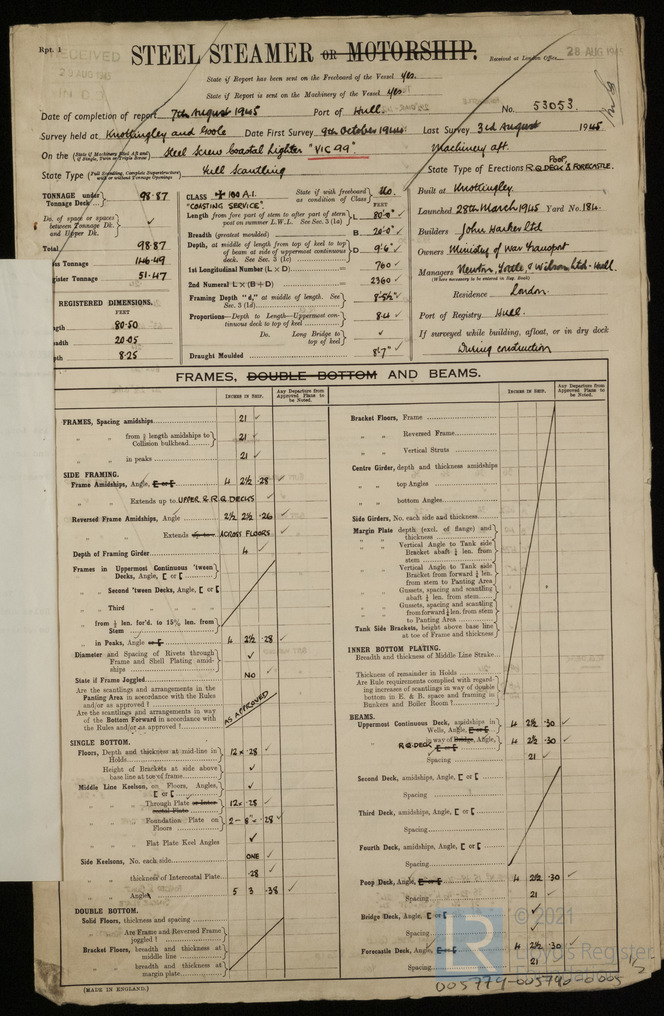 Rpt. 1
RECEIVED
STEEL STEAMER OR MOTORSHIP.
Received at London Office
28 AUG 1945
State if Report has been sent on the Freeboard of the Vessel Yes.
State if Report is sent on the Machinery of the Vessel Yes
Date of completion of report 7th August 1945 Port of Hull. No. 53053.
Survey held at Knottingley and Goole Date First Survey 9th October 1944 Last Survey 3rd August 1945
On the (State if Machinery Aft and if Single, Twin or Triple Screw) Steel Screw Coastal Lighter "VIC 99" Machinery aft.
State Type (Full Scantling, Complete Superstructure with or without Tonnage Openings) Full Scantling State Type of Erections POOP, R.Q.DECK & FORECASTLE.
TONNAGE under Tonnage Deck 98.87
Do. of space or spaces between Tonnage Dk. and Upper Dk.
Total 98.87
ss Tonnage 146.49
gister Tonnage 51.47
REGISTERED DIMENSIONS.
FEET
ngth 80.50
eadth 20.05
pth 8.25
CLASS ✠ 100 A.1. State if with freeboard as condition of Class No.
"COASTING SERVICE".
FEET
Length from fore part of stem to after part of stern post on summer L.W.L. See Sec. 3 (1a) L 80'-0" ✓
Breadth (greatest moulded) B 20'-0" ✓
Depth, at middle of length from top of keel to top of beam at side of uppermost continuous deck. See Sec. 3 (1c) D 9'-6" ✓
1st Longitudinal Number (L × D) = 760 ✓
2nd Numeral L × (B + D) = 2360 ✓
Framing Depth "d," at middle of length. See Sec. 3 (1d)
Proportions—Depth to Length—Uppermost continuous deck to top of keel 8.4 ✓
Do. Long Bridge to top of keel ✓
Draught Moulded 8'-7" ✓
Built at Knottingley
Launched 28th March 1945 Yard No. 184.
Builders John Harker Ltd
Owners Ministry of War Transport
Managers
(Where necessary to be entered in Reg. Book)
Residence London.
Port of Registry Hull.
If surveyed while building, afloat, or in dry dock
During construction
FRAMES, DOUBLE BOTTOM AND BEAMS.
INCHES IN SHIP. Any Departure from Approved Plans to be Noted.
INCHES IN SHIP. Any Departure from Approved Plans to be Noted.
FRAMES, Spacing amidships 21 ✓
" " from ⅗ length amidships to Collision bulkhead 21 ✓
" " in peaks 21 ✓
SIDE FRAMING.
Frame Amidships, Angle, [ or [ 4 2½ .28 ✓
" " Extends up to UPPER & R.Q DECKS ✓
Reversed Frame Amidships, Angle 2½ 2½ .26 ✓
" " Extends up to ACROSS FLOORS ✓
Depth of Framing Girder 4 ✓
Frames in Uppermost Continuous 'tween Decks, Angle, [ or [
" " Second 'tween Decks, Angle, [ or [
" " Third " " "
" " from ⅗ len. for'd. to 15% len. from Stem
" " in Peaks, Angle or [ 4 2½ .28 ✓
Diameter and Spacing of Rivets through Frame and Shell Plating amidships ✓
State if Frame Joggled NO
Are the scantlings and arrangements in the Panting Area in accordance with the Rules and/or as approved ?
Are the scantlings and arrangements in way of the Bottom Forward in accordance with the Rules and/or as approved ?
AS APPROVED
SINGLE BOTTOM.
Floors, Depth and thickness at mid-line in Holds 12 × .28 ✓
Height of Brackets at side above base line at toe of frame ✓
Middle Line Keelson, on Floors, Angles, [ or [ ✓
" " Through Plate or Intercostal Plate 12 × .28 ✓
" " Foundation Plate on Floors 2 - 8" × .28 ✓
" " Flat Plate Keel Angles ✓
Side Keelsons, No. each side ONE ✓
" " thickness of Intercostal Plate .28 ✓
" " Angles 5 3 .38 ✓
DOUBLE BOTTOM.
Solid Floors, thickness and spacing
" " Are Frame and Reversed Frame joggled ?
Bracket Floors, breadth and thickness at middle line
" " breadth and thickness at margin plate
(MADE IN ENGLAND.)
Bracket Floors, Frame
" " Reversed Frame
" " Vertical Struts
Centre Girder, depth and thickness amidships
" " top Angles
" " bottom Angles
Side Girders, No. each side and thickness
Margin Plate depth (excl. of flange) and thickness
" " Vertical Angle to Tank side Bracket abaft ¼ len. from stem
" " Vertical Angle to Tank side Bracket from forward ¼ len. from stem to Panting Area
" " Gussets, spacing and scantling abaft ¼ len. from stem
" " Gussets, spacing and scantling from forward ¼ len. from stem to Panting Area
Tank Side Brackets, height above base line at toe of Frame and thickness
INNER BOTTOM PLATING.
Breadth and thickness of Middle Line Strake
Thickness of remainder in Holds
Are Rule requirements complied with regarding increases of scantlings in way of double bottom in E. & B. space and framing in Bunkers and Boiler Room ?
BEAMS.
Uppermost Continuous Deck, amidships in Wells, Angle, [ or [ 4 2½ .30 ✓
R.Q.DECK " in way of Bridge, Angle, [ or [ 4 2½ .30 ✓
Spacing 21 ✓
Second Deck, amidships, Angle, [ or [
Spacing
Third Deck, amidships, Angle, [ or [
Spacing
Fourth Deck, amidships, Angle, [ or [
Spacing
Poop Deck, Angle, [ or [ 4 2½ .30 ✓
Spacing 21 ✓
Bridge Deck, Angle, [ or [ ✓
Spacing ✓
Forecastle Deck, Angle, [ or [ 4 2½ .30 ✓
Spacing 21 ✓
© 2021
Lloyd's Register
LR
1/2
005774-005790-0005